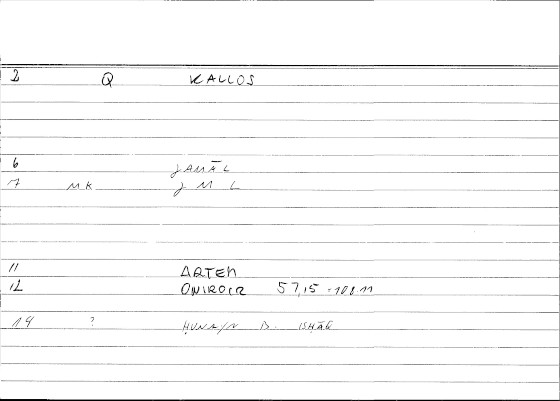 2 Q KALLOS
6 JAMĀL
7 MK J M L
11 ARTEM
12 ONIROCR 57,15 - 108.11
14 ? ḤUNAYN B. ISḤĀQ